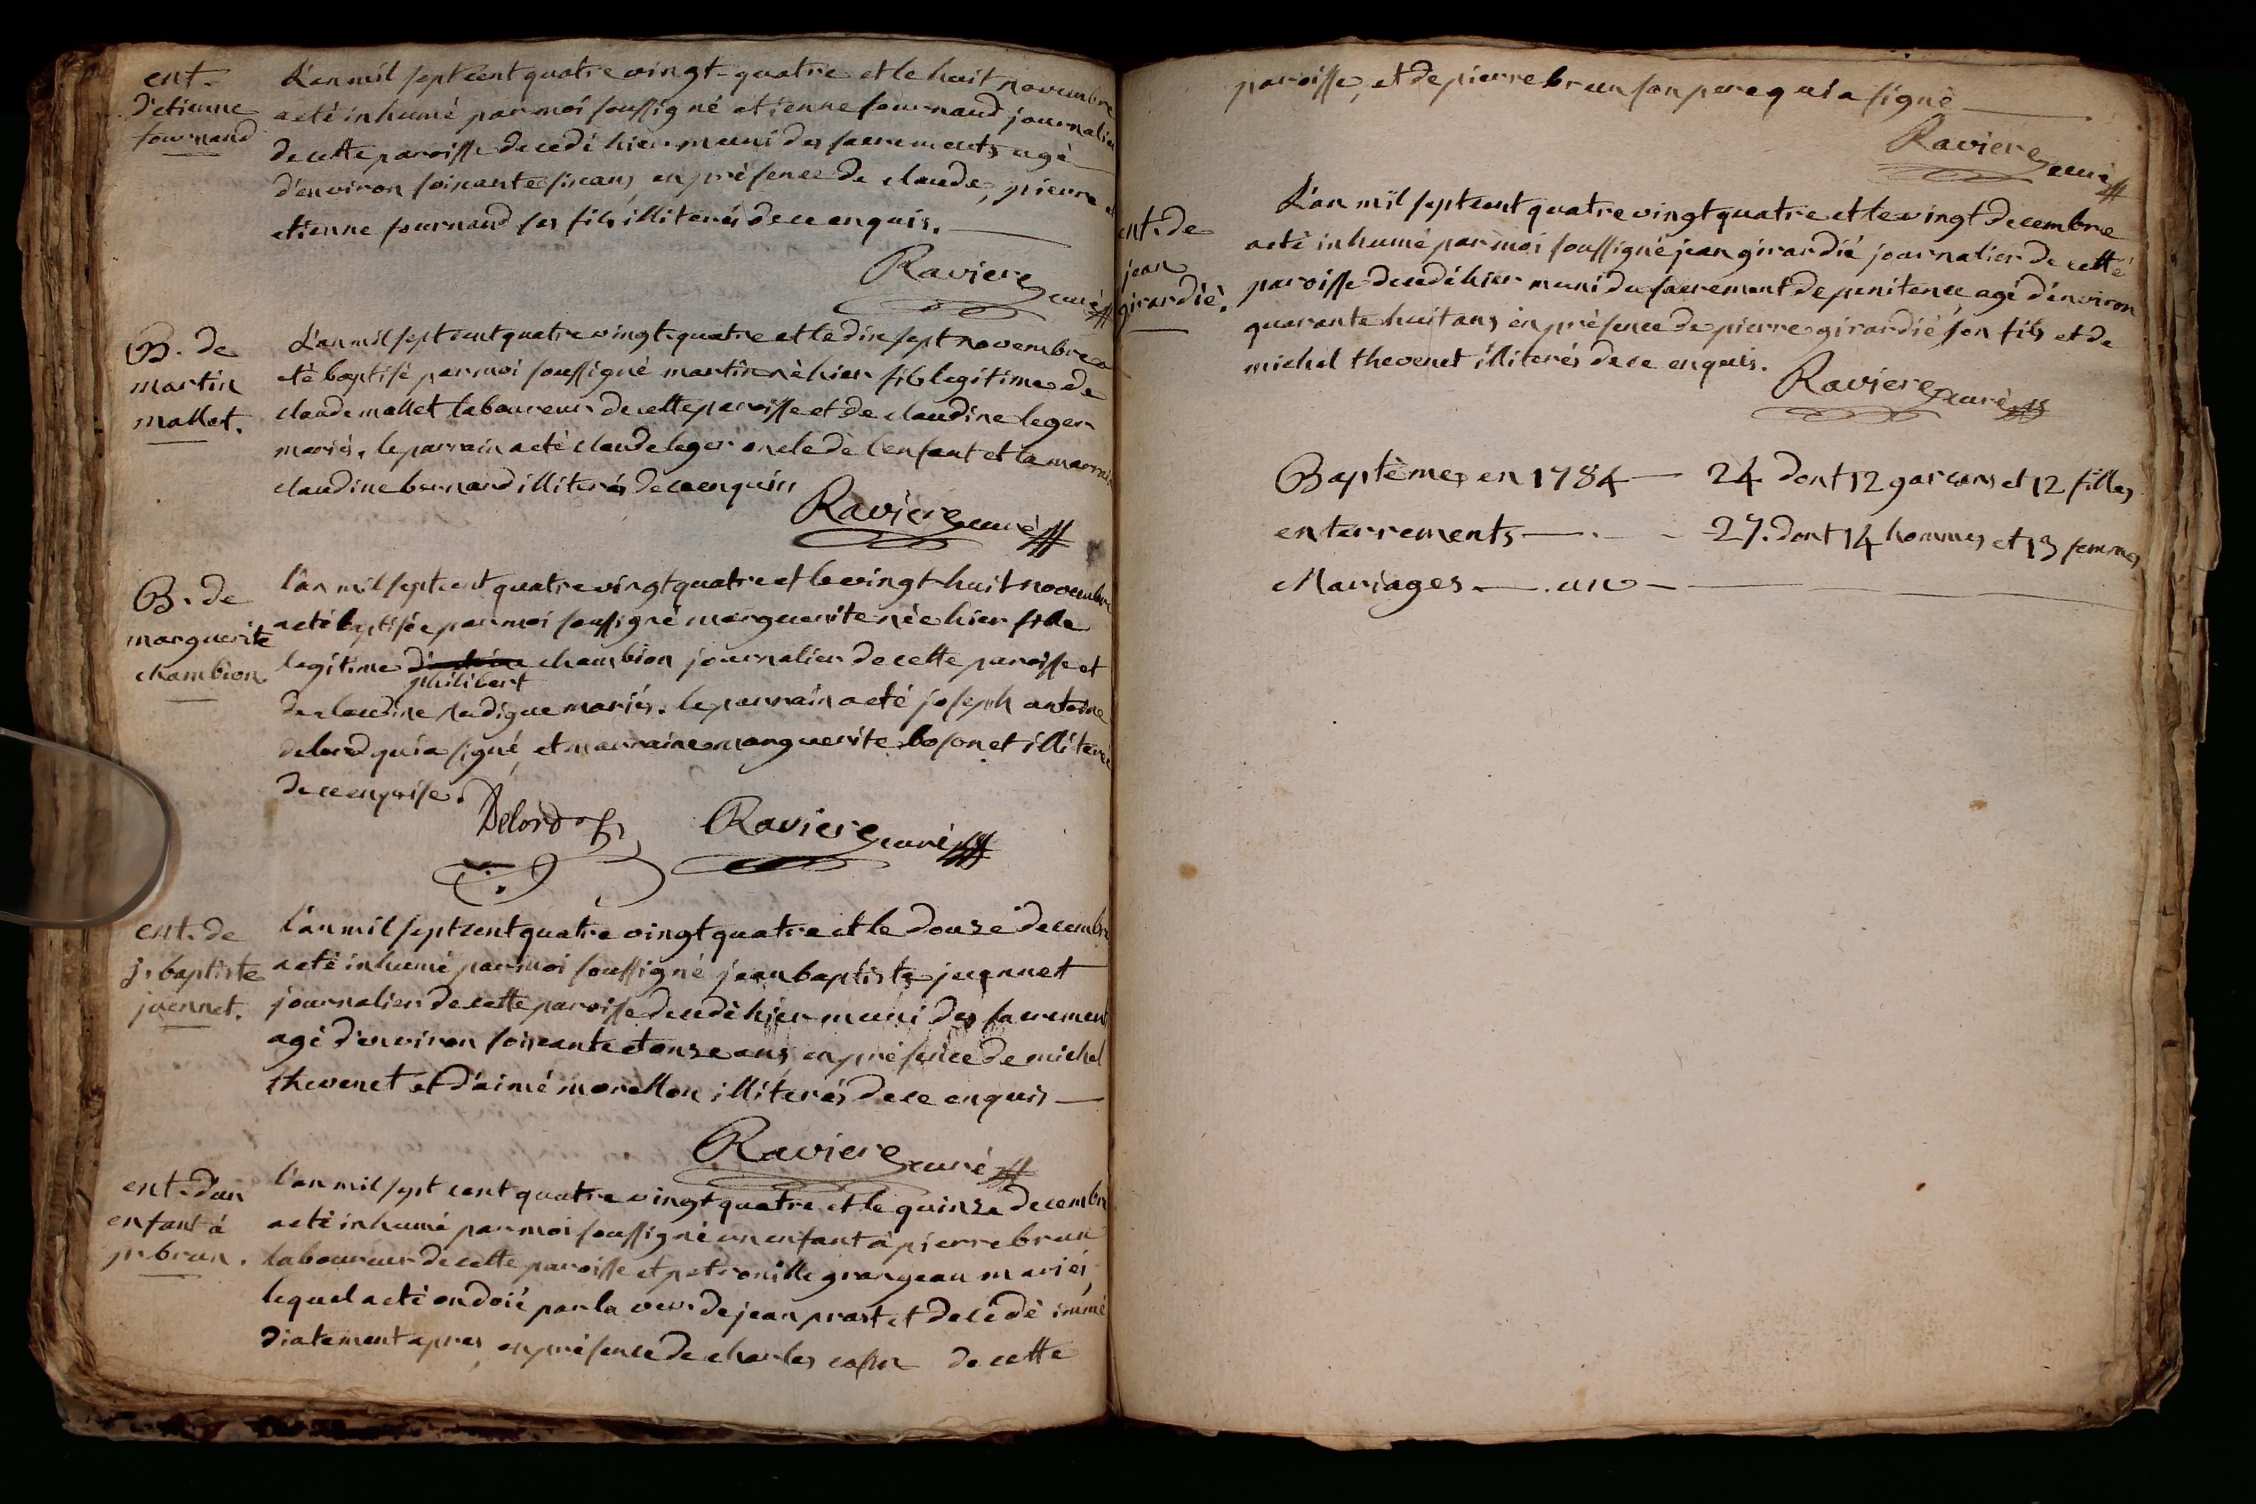 ent.
d'etienne
fournaud
L'an mil sept cent quatre vingt-quatre et le huit novembre
a eté inhumé par moi soussigné etienne fournaud journalier
de cette paroisse decedé hier muni des sacrements agé
d'environ soixante six ans en présence de claude, pierre et
etienne fournaud ses fils illiterés de ce enquis.
Raviere curé
B. de
martin
mallet.
L'an mil sept cent quatre vingt quatre et le dix sept novembre a
eté baptisé par moi soussigné martin né hier fils legitime de
claude mallet laboureur de cette paroisse et de claudine leger
mariés. le parrain a eté claude leger oncle de l'enfant et la marraine
claudine bernard illiterés de ce enquis
Raviere curé
B. de
marguerite
chambion.
l'an mil sept cent quatre vingt quatre et le vingt huit novembre
a eté baptisée par moi soussigné marguerite née hier fille
legitime chambion journalier de cette paroisse et
philibert
de claudine mariés. le parrain a eté joseph antoine
delord qui a signé, et marraine marguerite bosonet illiterée
de ce enquise.
Delord Raviere curé
ent. de
j. baptiste
juennet.
l'an mil sept cent quatre vingt quatre et le douze decembre
a eté inhumé par moi soussigné jean baptiste juennet
journalier de cette paroisse decedé hier muni des sacrement
agé d'environ soixante et onze ans, en présence de michel
thevenet et d'aimé morellon illiterés de ce enquis
Raviere curé
ent. d'un
enfant á
p. brun.
l'an mil sept cent quatre vingt quatre et le quinze decembre
a eté inhumé par moi soussigné un enfant à pierre brun
laboureur de cette paroisse et petronille grangeau mariés,
lequel a eté ondoié par la veuve de jean prost et decedé immé
diatement apres, en présence de charles de cette
paroisse, et de pierre brun son pere qui a signé
Raviere curé
ent. de
jean
girardié.
L'an mil sept cent quatre vingt quatre et le vingt decembre
a eté inhumé par moi soussigné jean girardié journalier de cette
paroisse decedé hier muni du sacrement de penitence agé d'environ
quarante huit ans en présence de pierre girardié son fils et de
michel thevenet illiterés de ce enquis.
Raviere curé
Baptêmes en 1784 — 24 dont 12 garcons et 12 filles
enterrements — . - - 27. dont 14 hommes et 13 femmes
Mariages — . un —